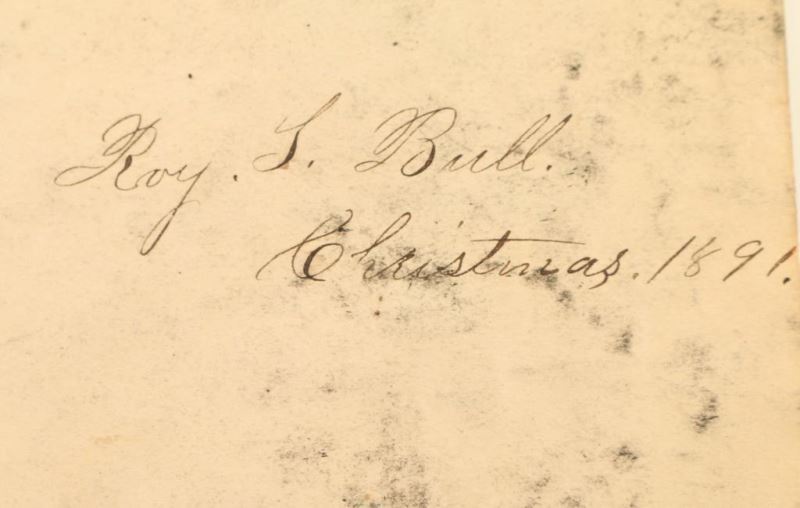 Roy. S. Bull.
Christmas. 1891.